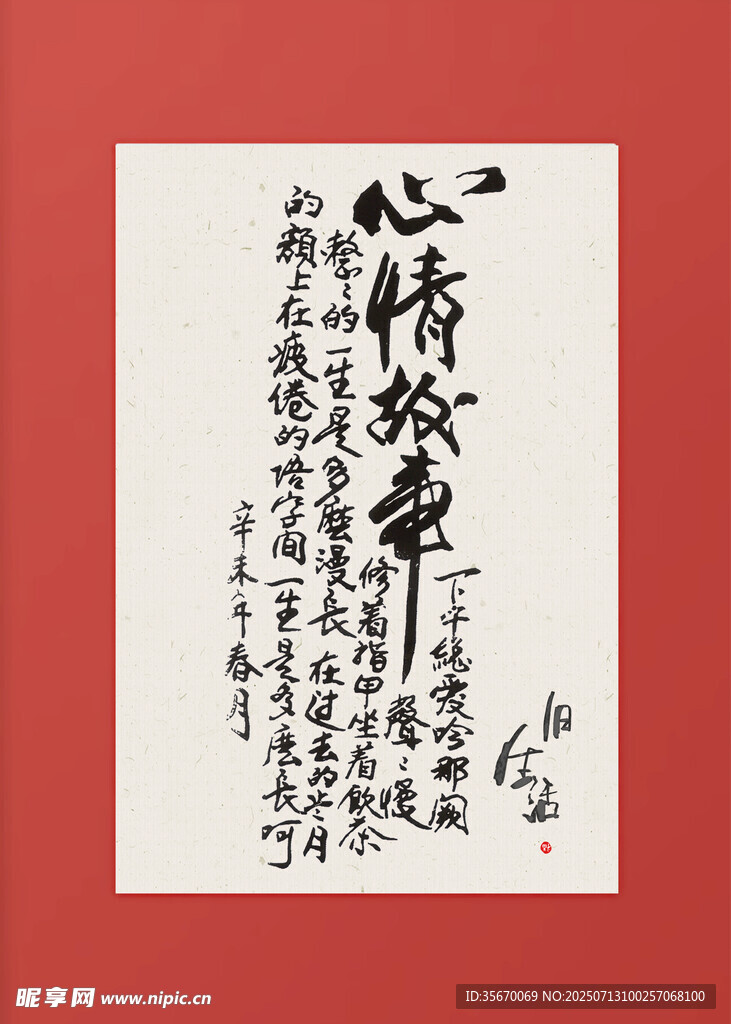 旧
生活
心情故事
下午總爱吟那阙
聲々慢
修着指甲坐着飲茶
整々的一生是多麼漫長在过去的岁月
的額上在疲倦的语字间一生是多麼長呵
辛未年春月
昵享网 www.nipic.cn
ID:35670069 NO:20250713100257068100